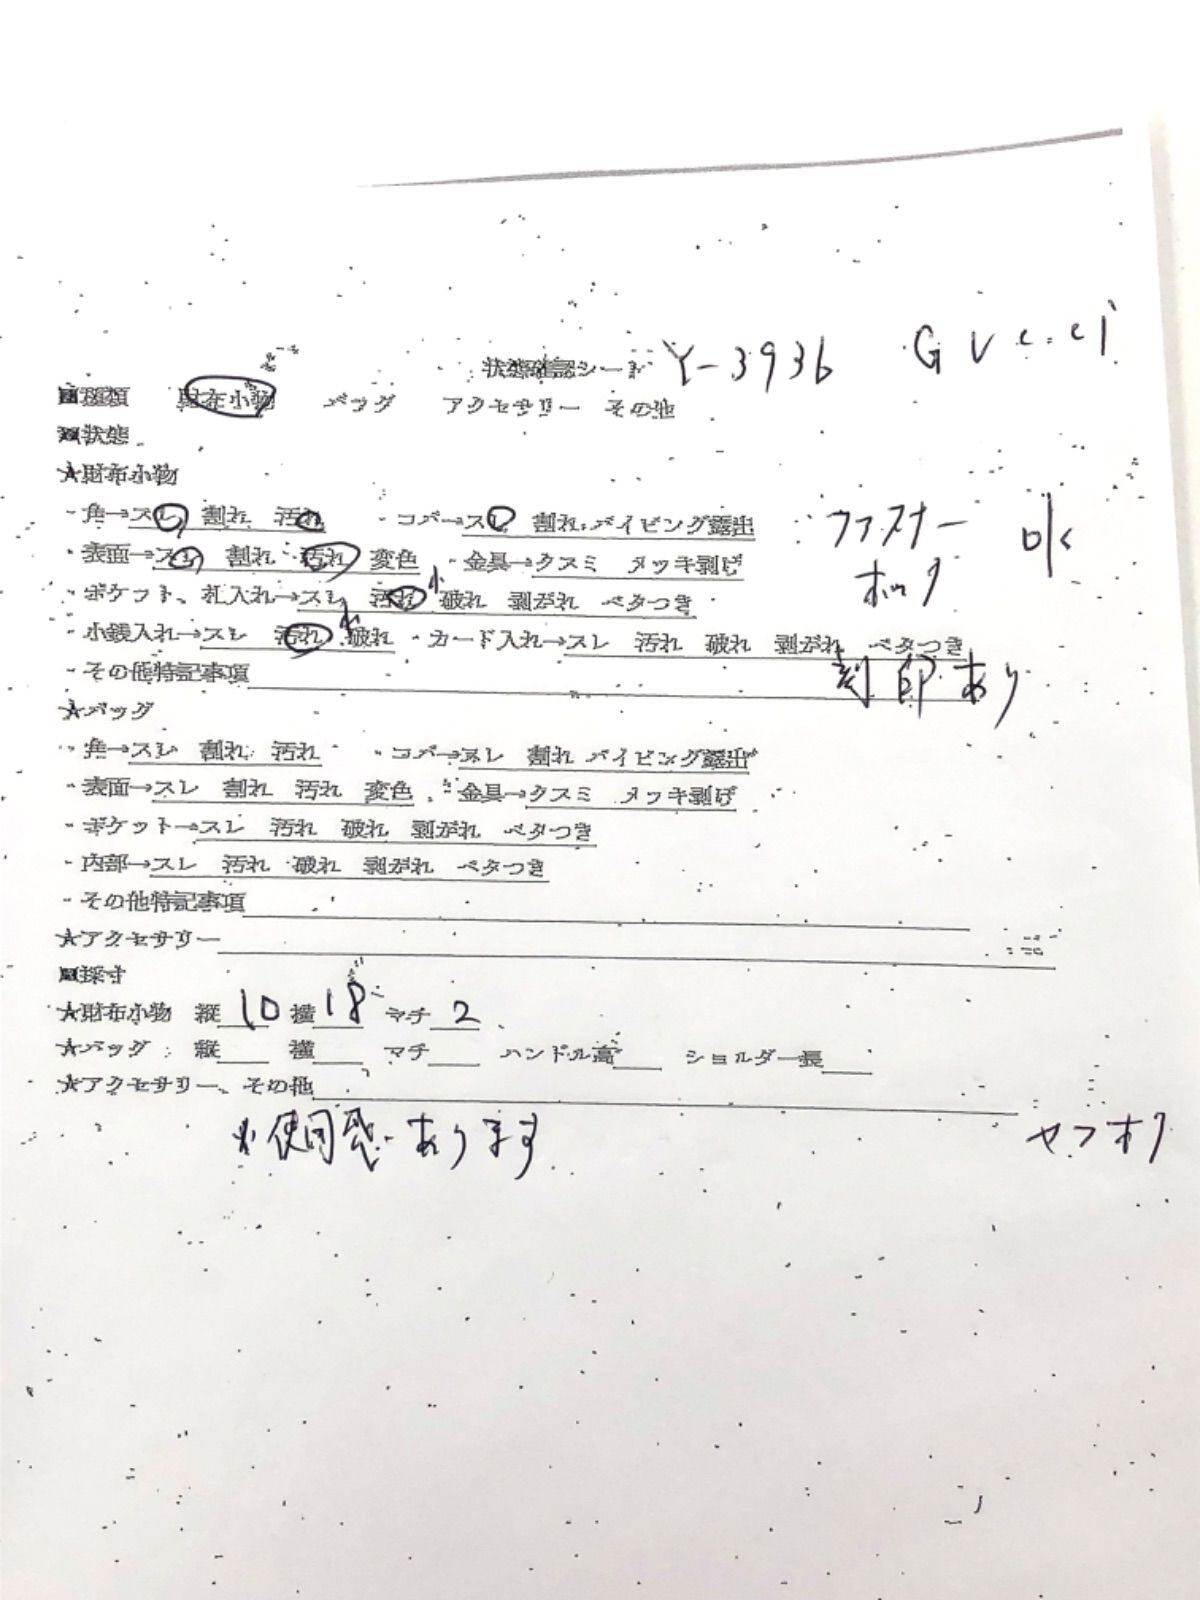 状態確認シート Y-3936 Gucci
■種類 財布小物 バッグ アクセサリー その他
■状態
★財布小物
・角→スレ 割れ 汚れ ・コバ→スレ 割れ パイピング露出 ファスナー ok
・表面→スレ 割れ 汚れ 変色 ・金具→クスミ メッキ剥げ ホック
・ポケット、札入れ→スレ 汚れ 小 破れ 剥がれ ベタつき
・小銭入れ→スレ 汚れ 小 破れ ・カード入れ→スレ 汚れ 破れ 剥がれ ベタつき
・その他特記事項 刻印あり
★バッグ
・角→スレ 割れ 汚れ ・コバ→スレ 割れ パイピング露出
・表面→スレ 割れ 汚れ 変色 ・金具→クスミ メッキ剥げ
・ポケット→スレ 汚れ 破れ 剥がれ ベタつき
・内部→スレ 汚れ 破れ 剥がれ ベタつき
・その他特記事項
★アクセサリー
■採寸
★財布小物 縦 10 横 18 マチ 2
★バッグ 縦 横 マチ ハンドル高 ショルダー長
★アクセサリー、その他
※使用感あります ヤフオク